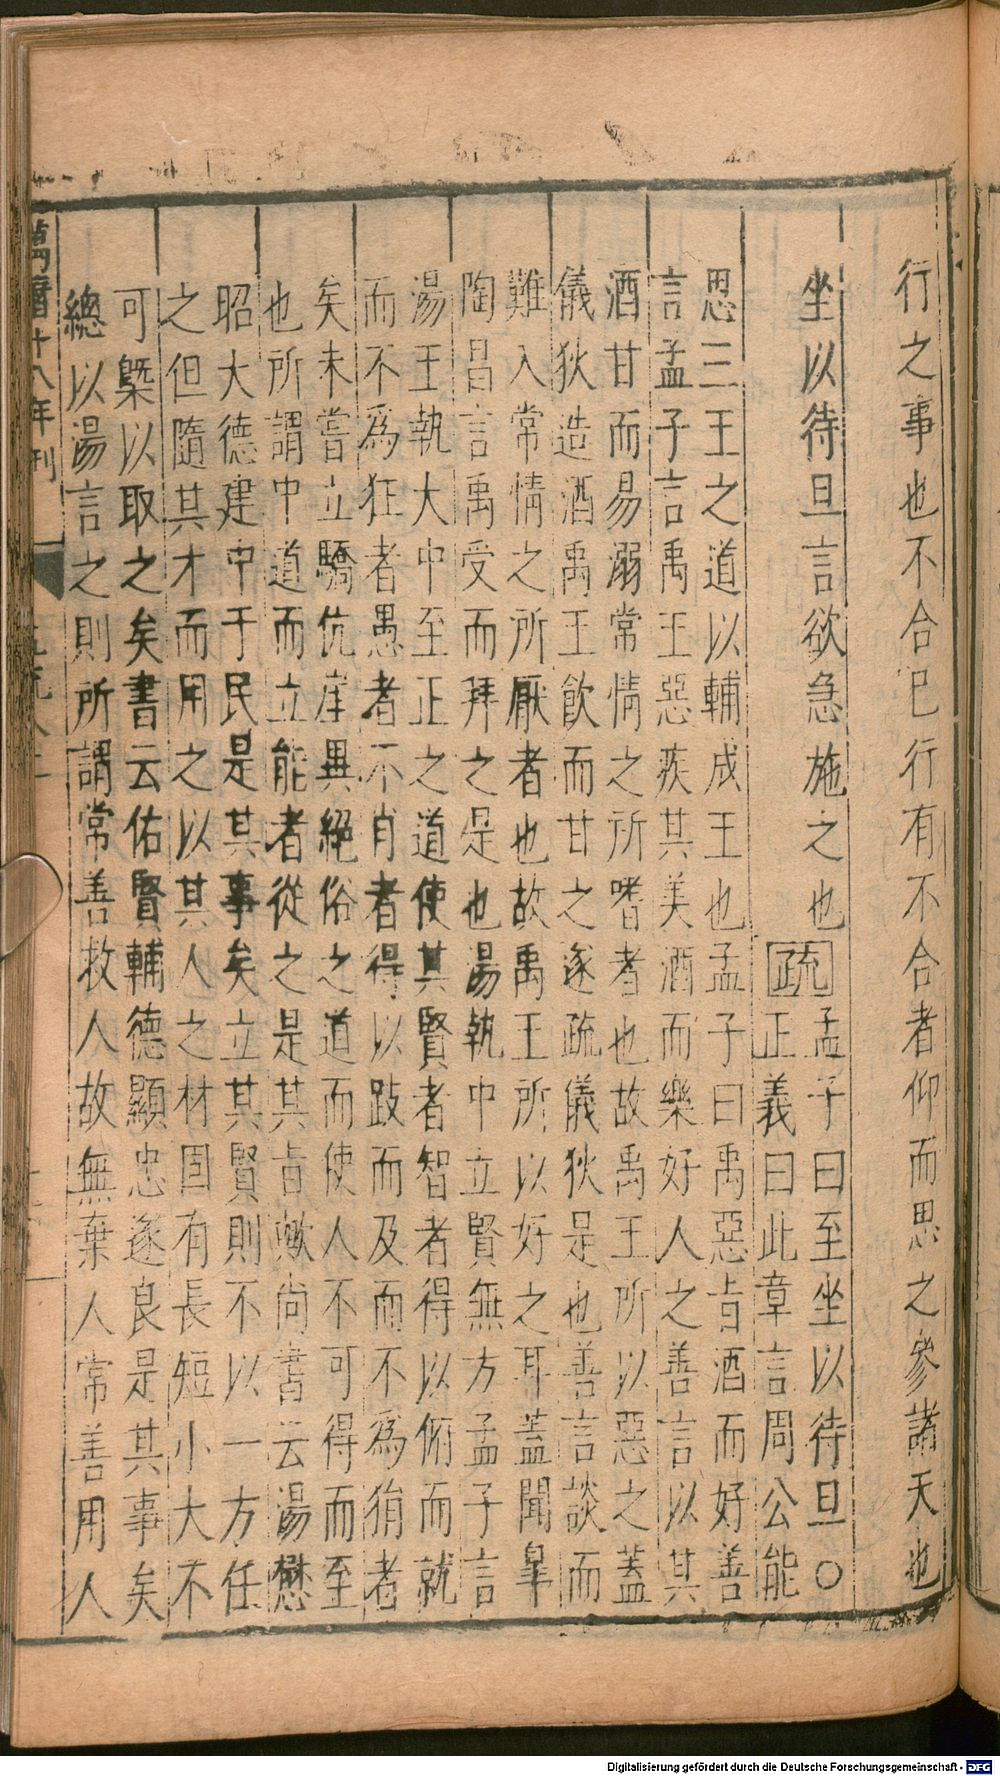 行之事也不合已行有不合者仰而思之參諸天也
坐以待旦言欲急施之也
疏
孟子曰至坐以待旦○
正義曰此章言周公能
思三王之道以輔成王也孟子曰禹惡旨酒而好善
言孟子言禹王惡疾其美酒而樂好人之善言以其
酒甘而易溺常情之所嗜者也故禹王所以惡之蓋
儀狄造酒禹王飲而甘之遂疏儀狄是也善言談而
難入常情之所厭者也故禹王所以好之耳蓋聞皐
陶昌言禹受而拜之是也湯執中立賢無方孟子言
湯王執大中至正之道使其賢者智者得以俯而就
而不爲狂者愚者不肖者得以跂而及而不爲狷者
矣未嘗立驕伉崖異絕俗之道而使人不可得而至
也所謂中道而立能者從之是其旨歟尚書云湯懋
昭大德建中于民是其事矣立其賢則不以一方任
之但隨其才而用之以其人之材固有長短小大不
可槩以取之矣書云佑賢輔德顯忠遂良是其事矣
總以湯言之則所謂常善救人故無棄人常善用人
萬曆十八年刊
Digitalisierung gefördert durch die Deutsche Forschungsgemeinschaft - DFG